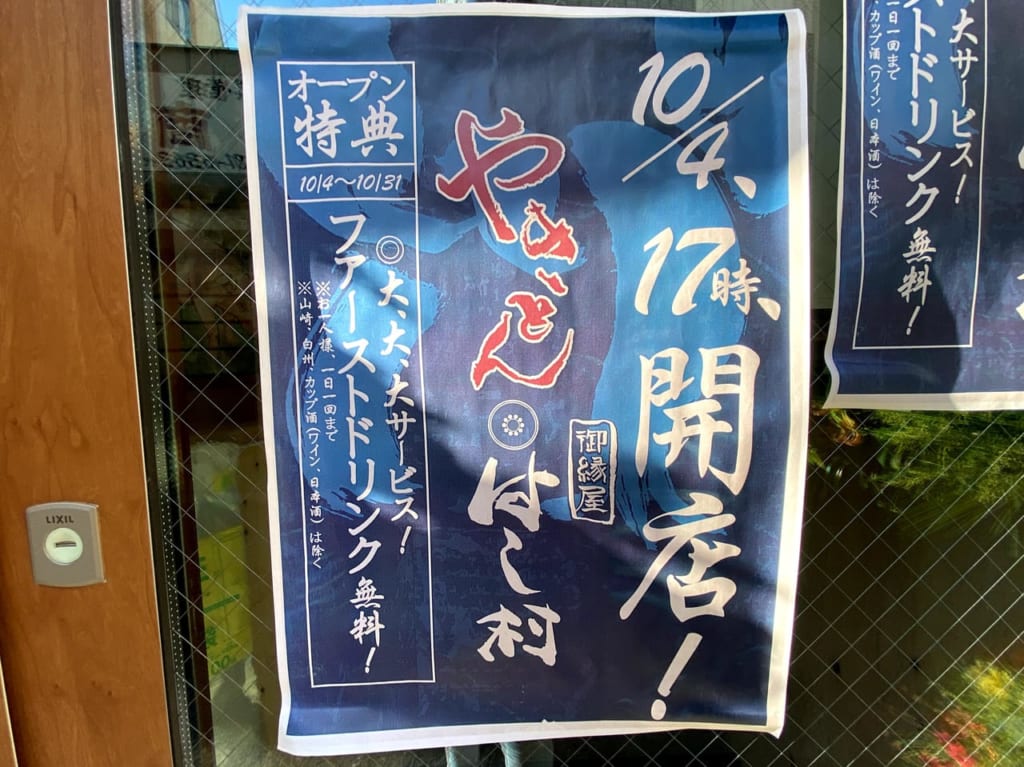 10/4、17時、開店！
御縁屋
やきとん
はし村
オープン
特典
10/4～10/31
◎大、大、大サービス！
ファーストドリンク無料！
※お一人様、一日一回まで
※山崎、白州、カップ酒(ワイン、日本酒)は除く
大サービス！
ストドリンク無料！
一日一回まで
カップ酒(ワイン、日本酒)は除く
LIXIL